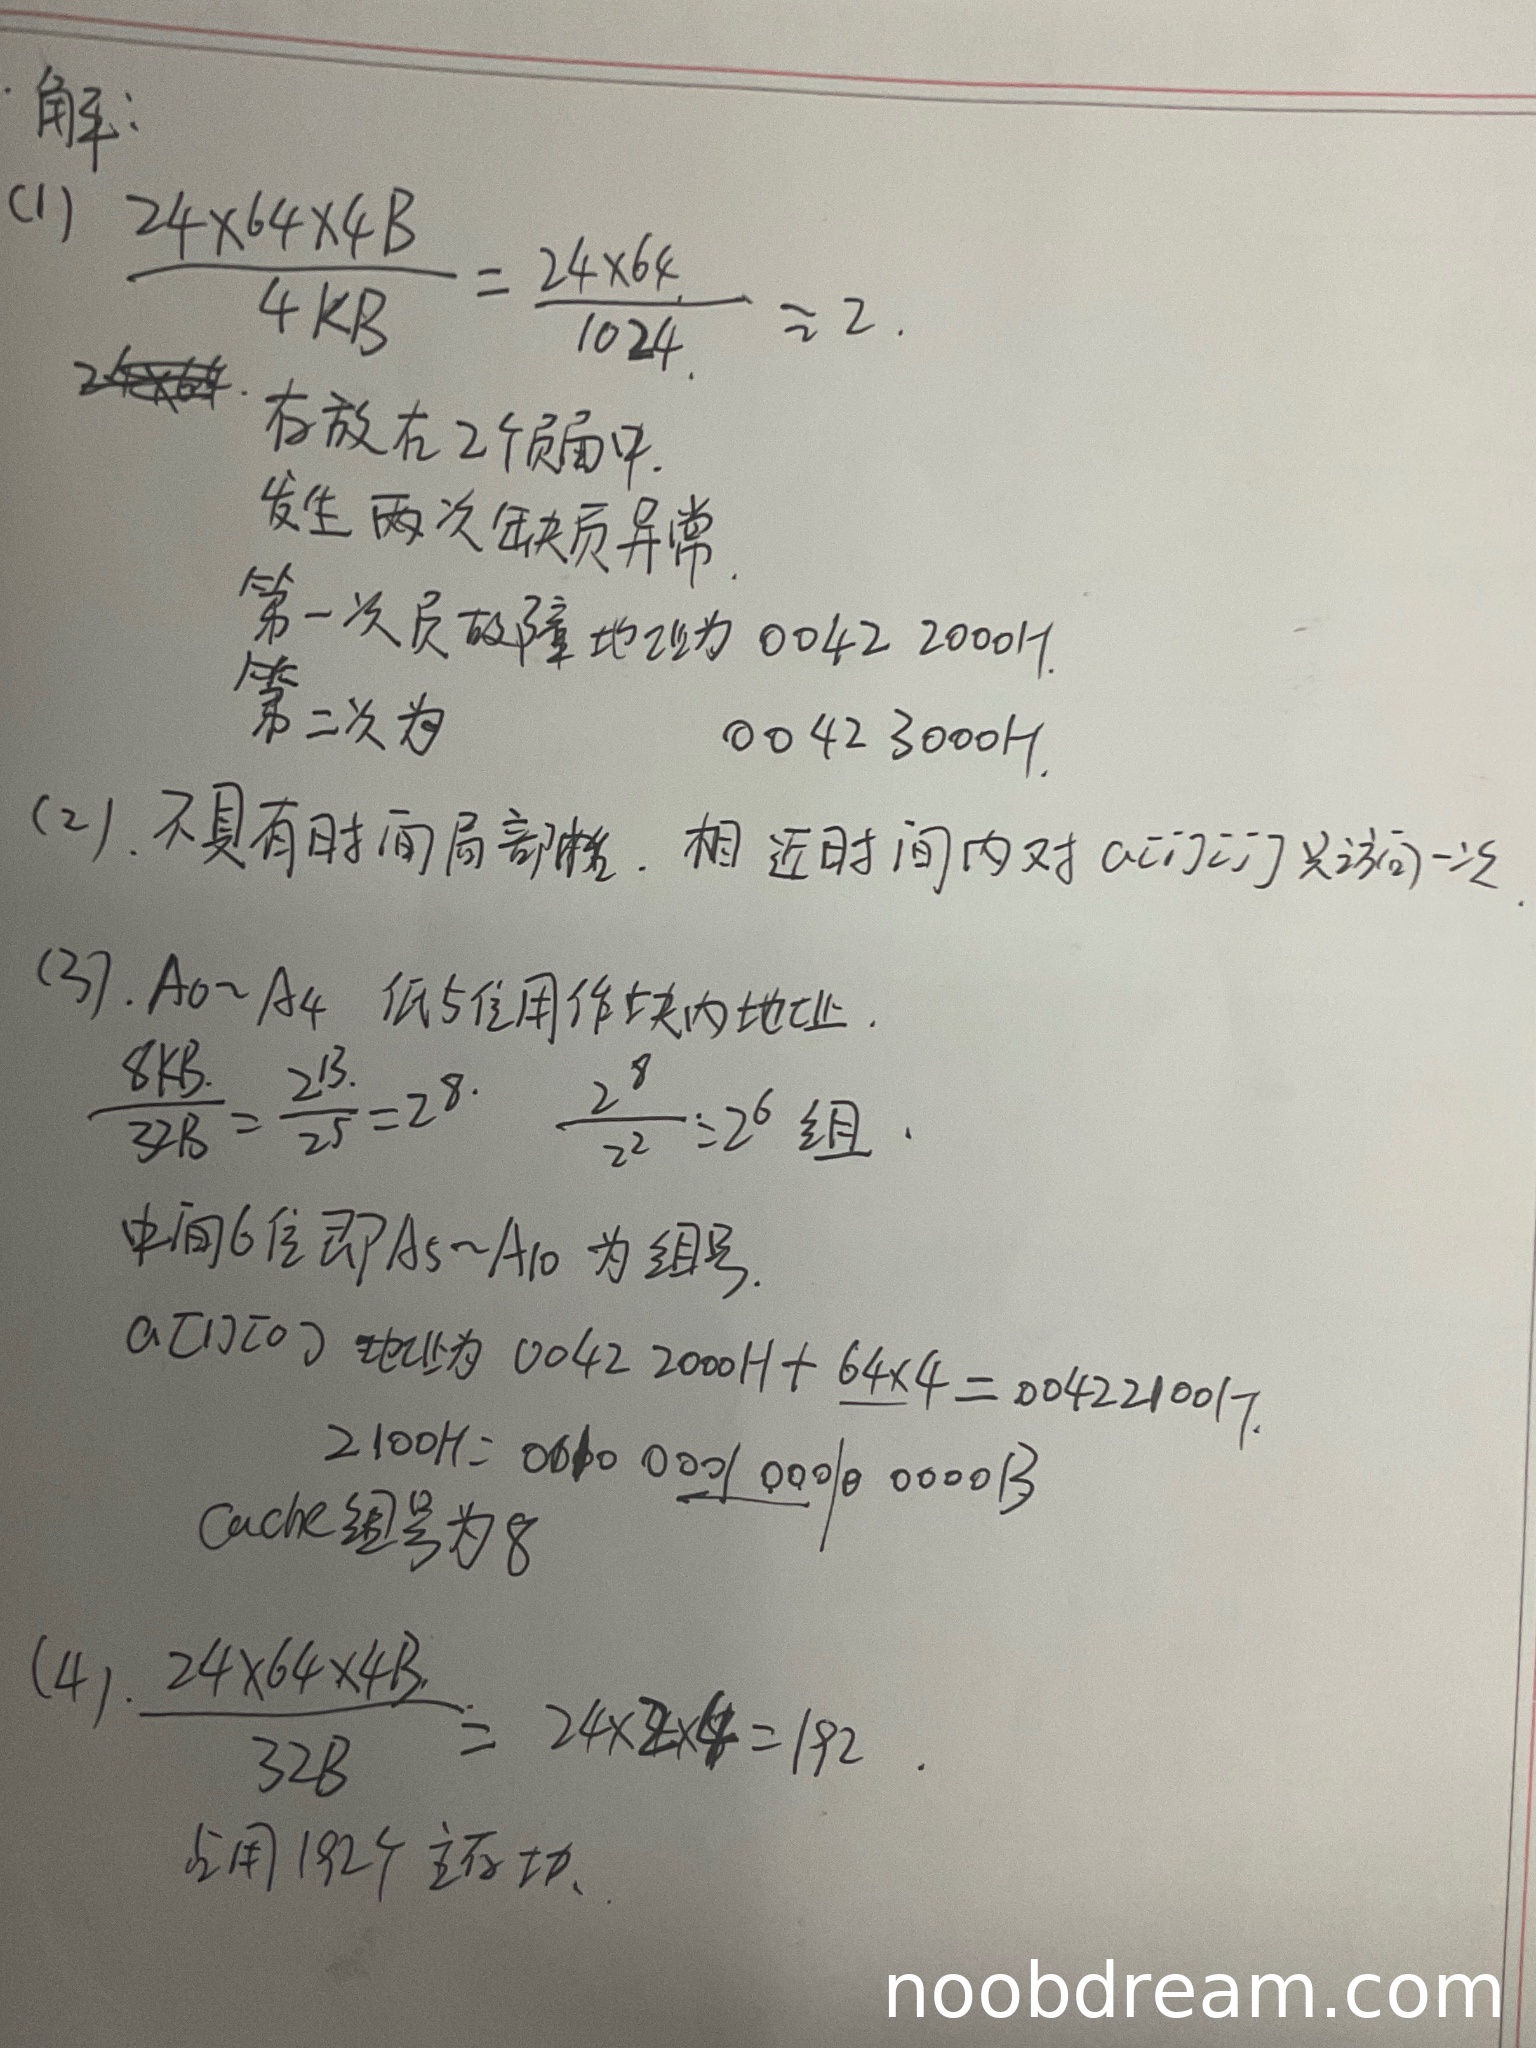 解:
(1) 24×64×4B / 4KB = 24×64 / 1024 ≈ 2.
存放在2个页面中.
发生两次缺页异常.
第一次页故障地址为 0042 2000H.
第二次为 0042 3000H.
(2). 不具有时间局部性. 相近时间内对a[i][j]只访问一次.
(3). A0~A4 低5位用作块内地址.
8KB / 32B = 2^13 / 2^5 = 2^8. 2^8 / 2^2 = 2^6 组.
中间6位即A5~A10 为组号.
a[1][0] 地址为 0042 2000H + 64×4 = 00422100H.
2100H = 0010 0001 0000 0000B
Cache组号为8
(4). 24×64×4B / 32B = 24×2×4 = 192.
占用192个主存块.
noobdream.com